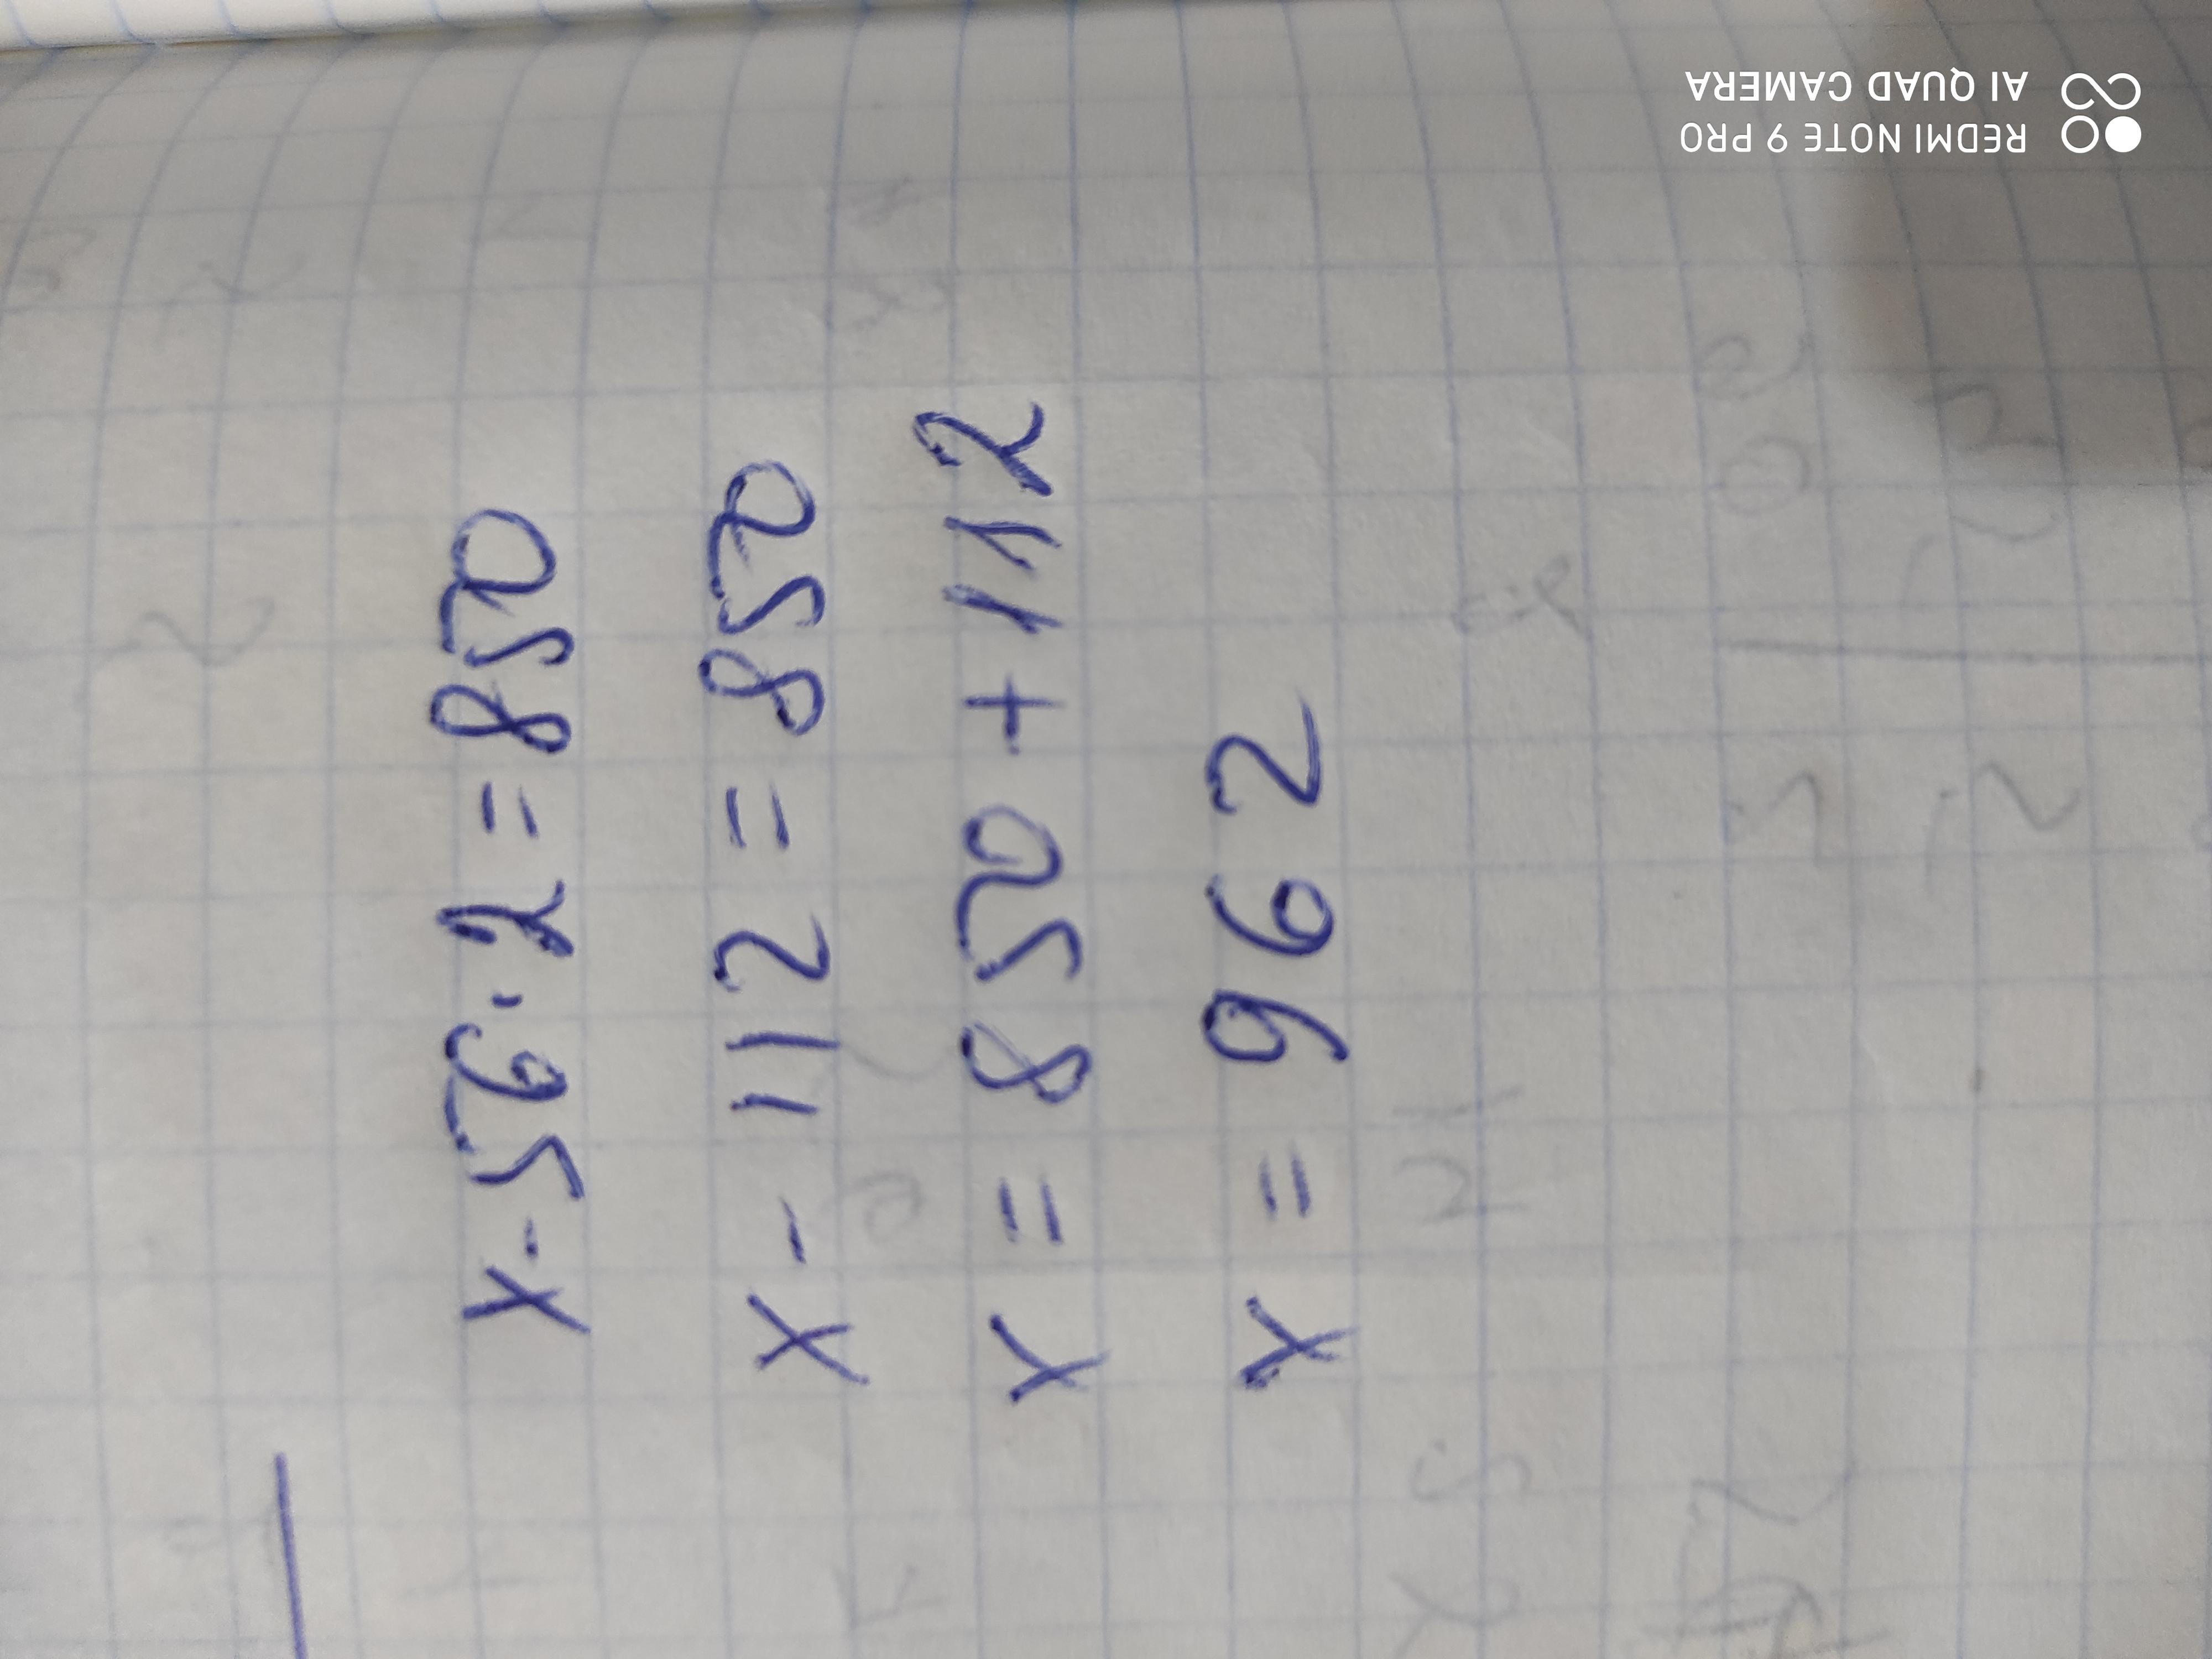 x - 56 · 2 = 850
x - 112 = 850
x = 850 + 112
x = 962
REDMI NOTE 9 PRO
AI QUAD CAMERA